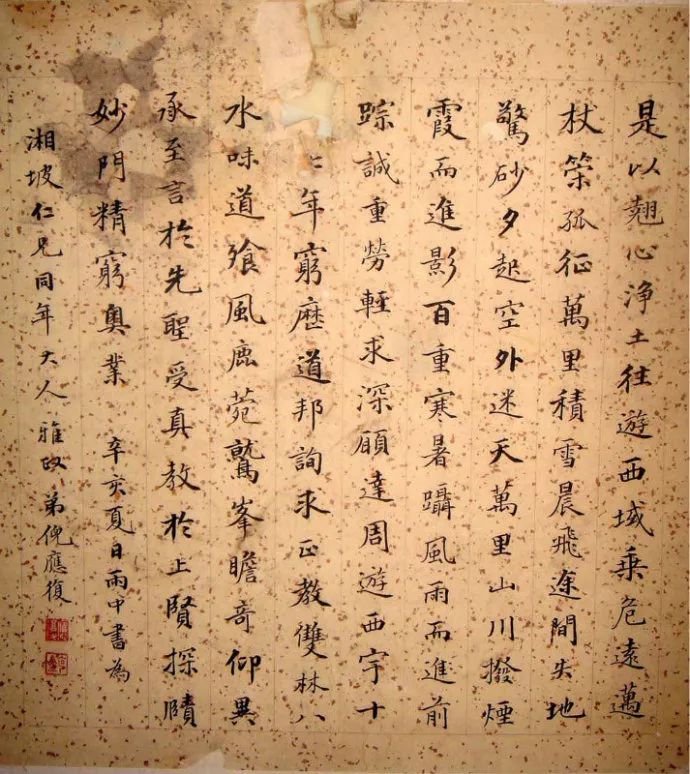 是以翹心淨土往遊西域乗危遠邁
杖策孤征萬里積雪晨飛途間失地
驚砂夕起空外迷天萬里山川撥煙
霞而進影百重寒暑躡風雨而進前
踪誠重勞輕求深願達周遊西宇十
七年窮歷道邦詢求正教雙林八
水味道飡風鹿苑鷲峯瞻奇仰異
承至言於先聖受真教於上賢探賾
妙門精窮奧業 辛亥夏日雨中書為
湘坡仁兄同年大人雅政 弟倪應復